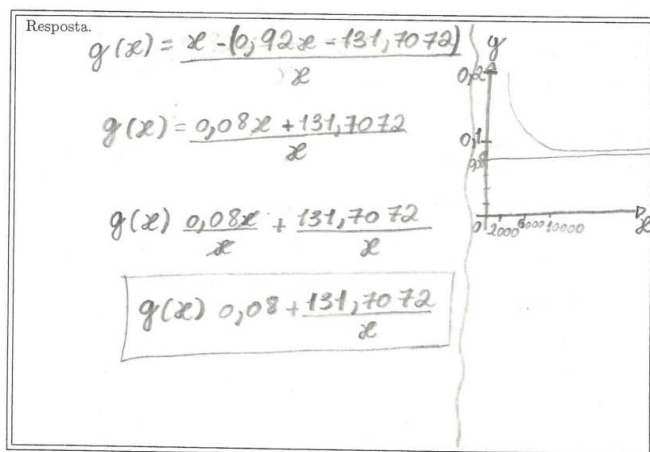 Resposta.
g(x) = x - (0,92x - 131,7072)
x
g(x) = 0,08x + 131,7072
x
g(x) 0,08x + 131,7072
x x
g(x) 0,08 + 131,7072
x
y
0,2
0,1
0,08
0 2000 6000 10000 x